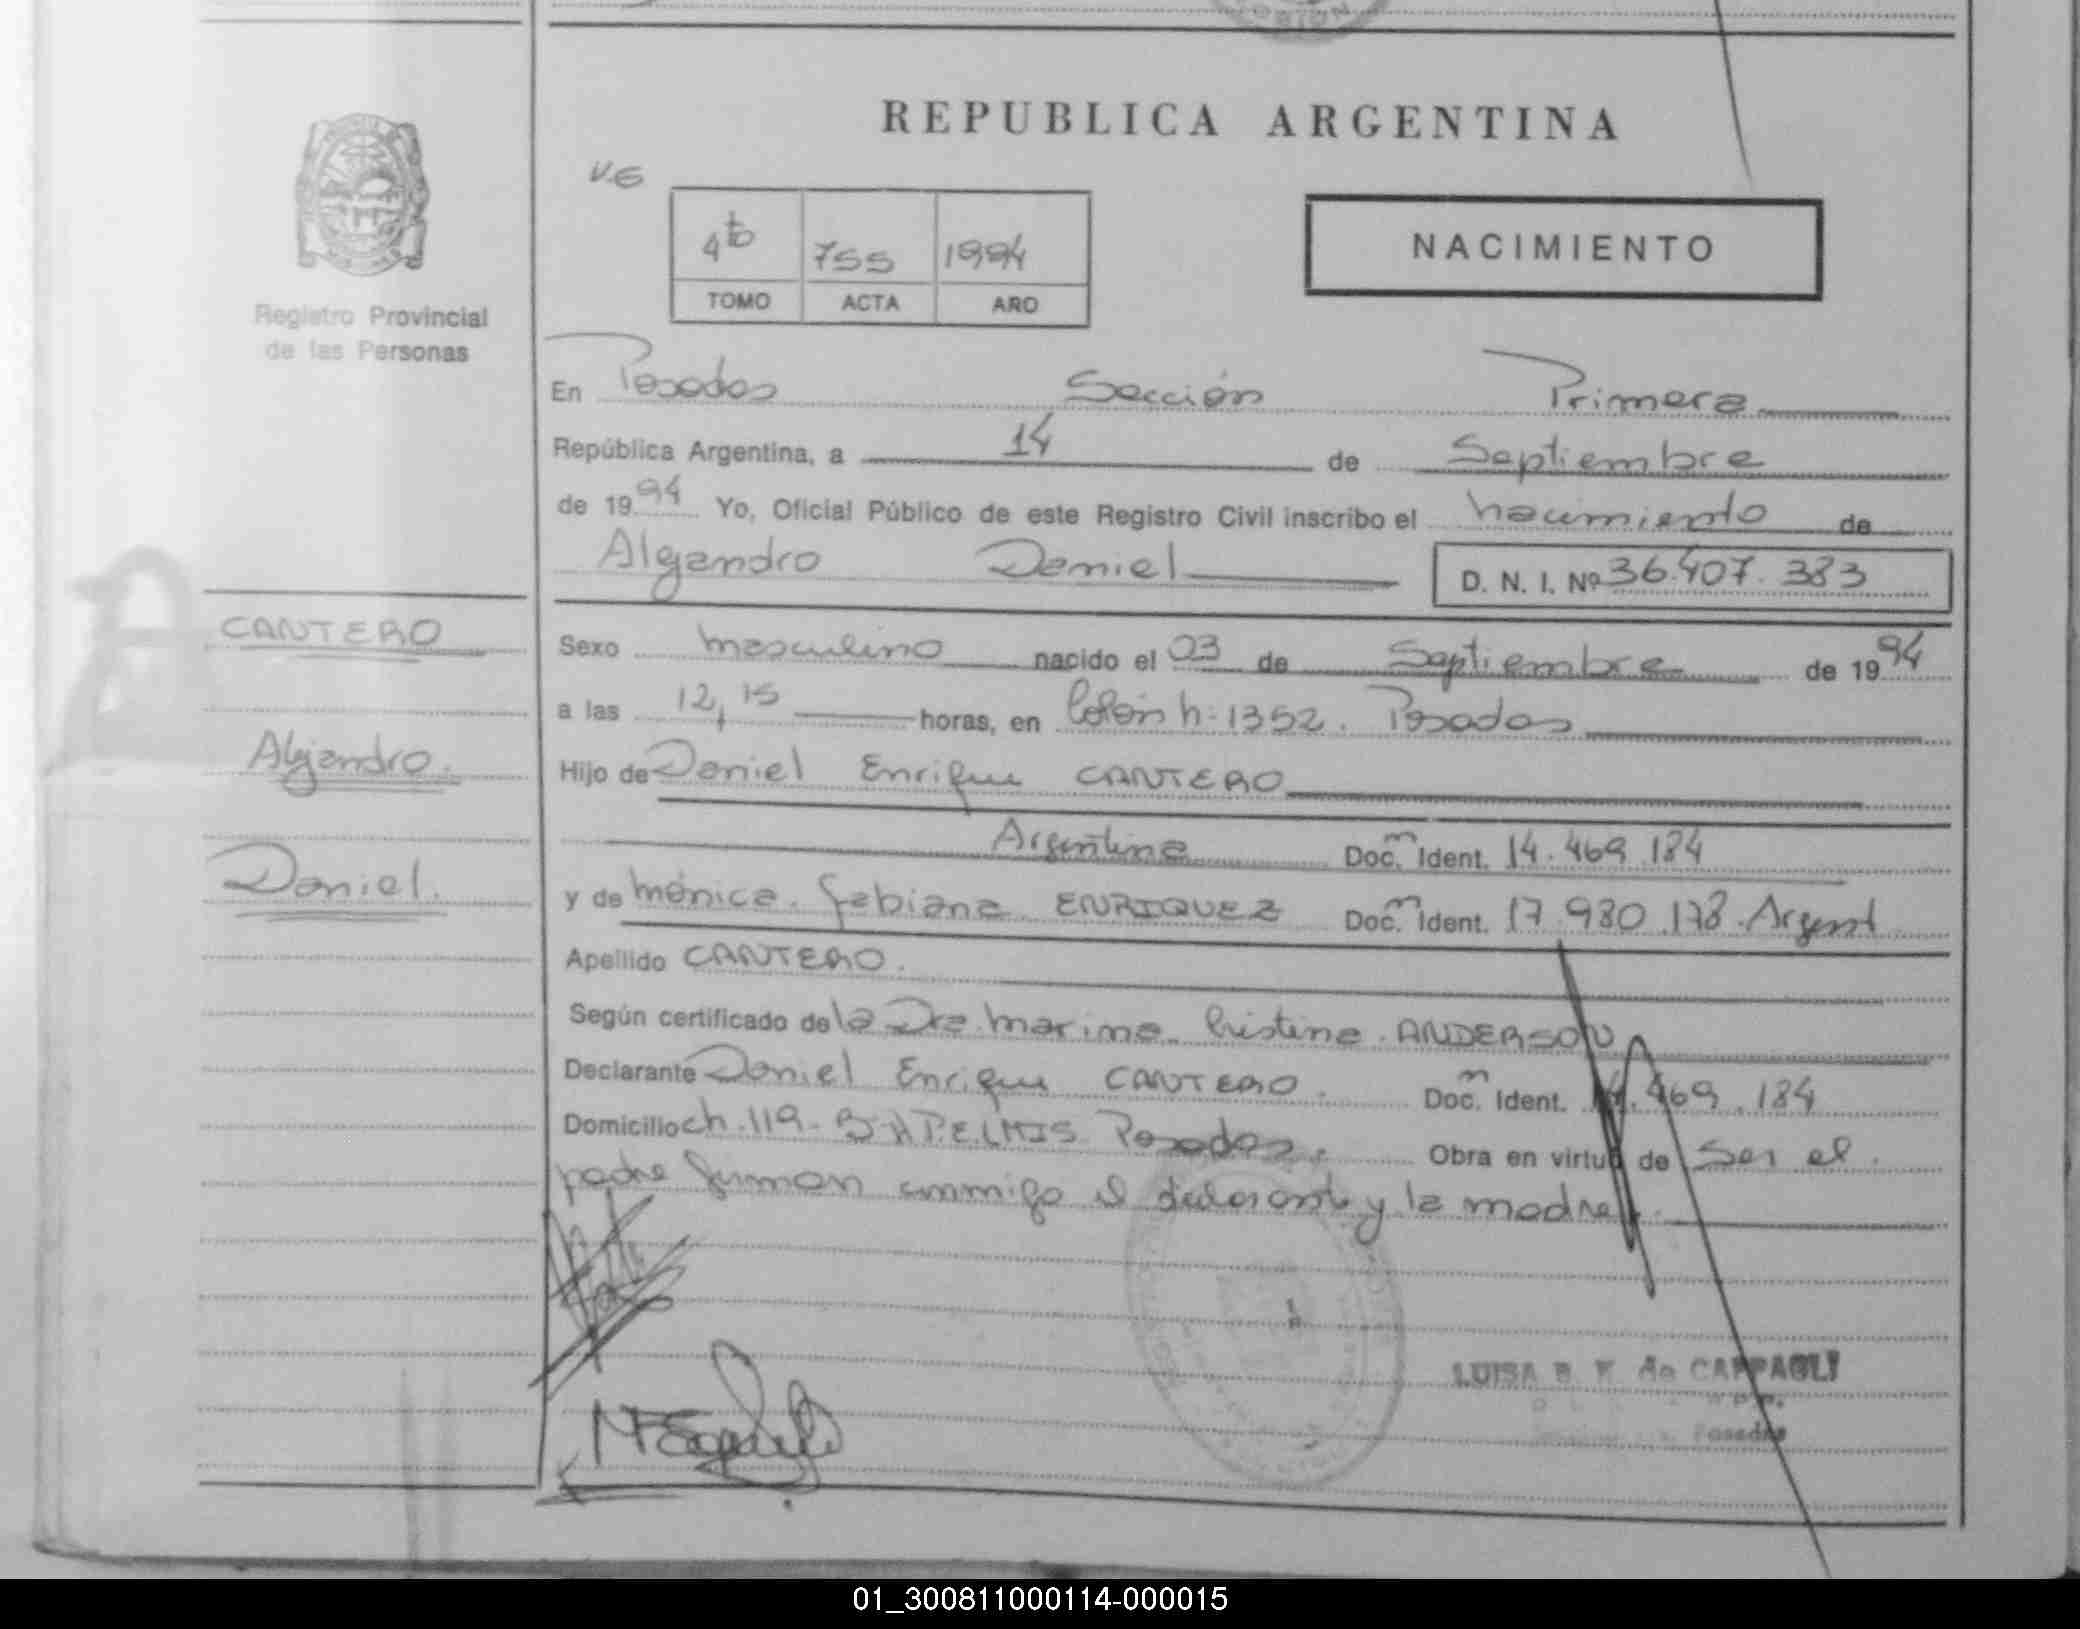 REPUBLICA ARGENTINA
V.E
4to 755 1994
TOMO ACTA AÑO
NACIMIENTO
Registro Provincial
de las Personas
En Posadas Sección Primera
República Argentina, a 14 de Septiembre
de 1994 Yo, Oficial Público de este Registro Civil inscribo el nacimiento de
Alejandro Daniel D. N. I. Nº 36.407.383
CANTERO
Alejandro.
Daniel.
Sexo masculino nacido el 03 de Septiembre de 1994
a las 12,15 horas, en Colón n: 1352. Posadas
Hijo de Daniel Enrique CANTERO
Argentina Doc. Ident. 14.469.184
y de Mónica Fabiana ENRIQUEZ Doc. Ident. 17.980.178. Argent
Apellido CANTERO.
Según certificado de la Dra. Marina Cristina ANDERSON
Declarante Daniel Enrique CANTERO. Doc. Ident. 14.469.184
Domicilio ch.119- Posadas. Obra en virtud de Ser el
padre firman conmigo el declarante y la madre.
LUISA B. de CAPPAGLI
Posadas
01_300811000114-000015